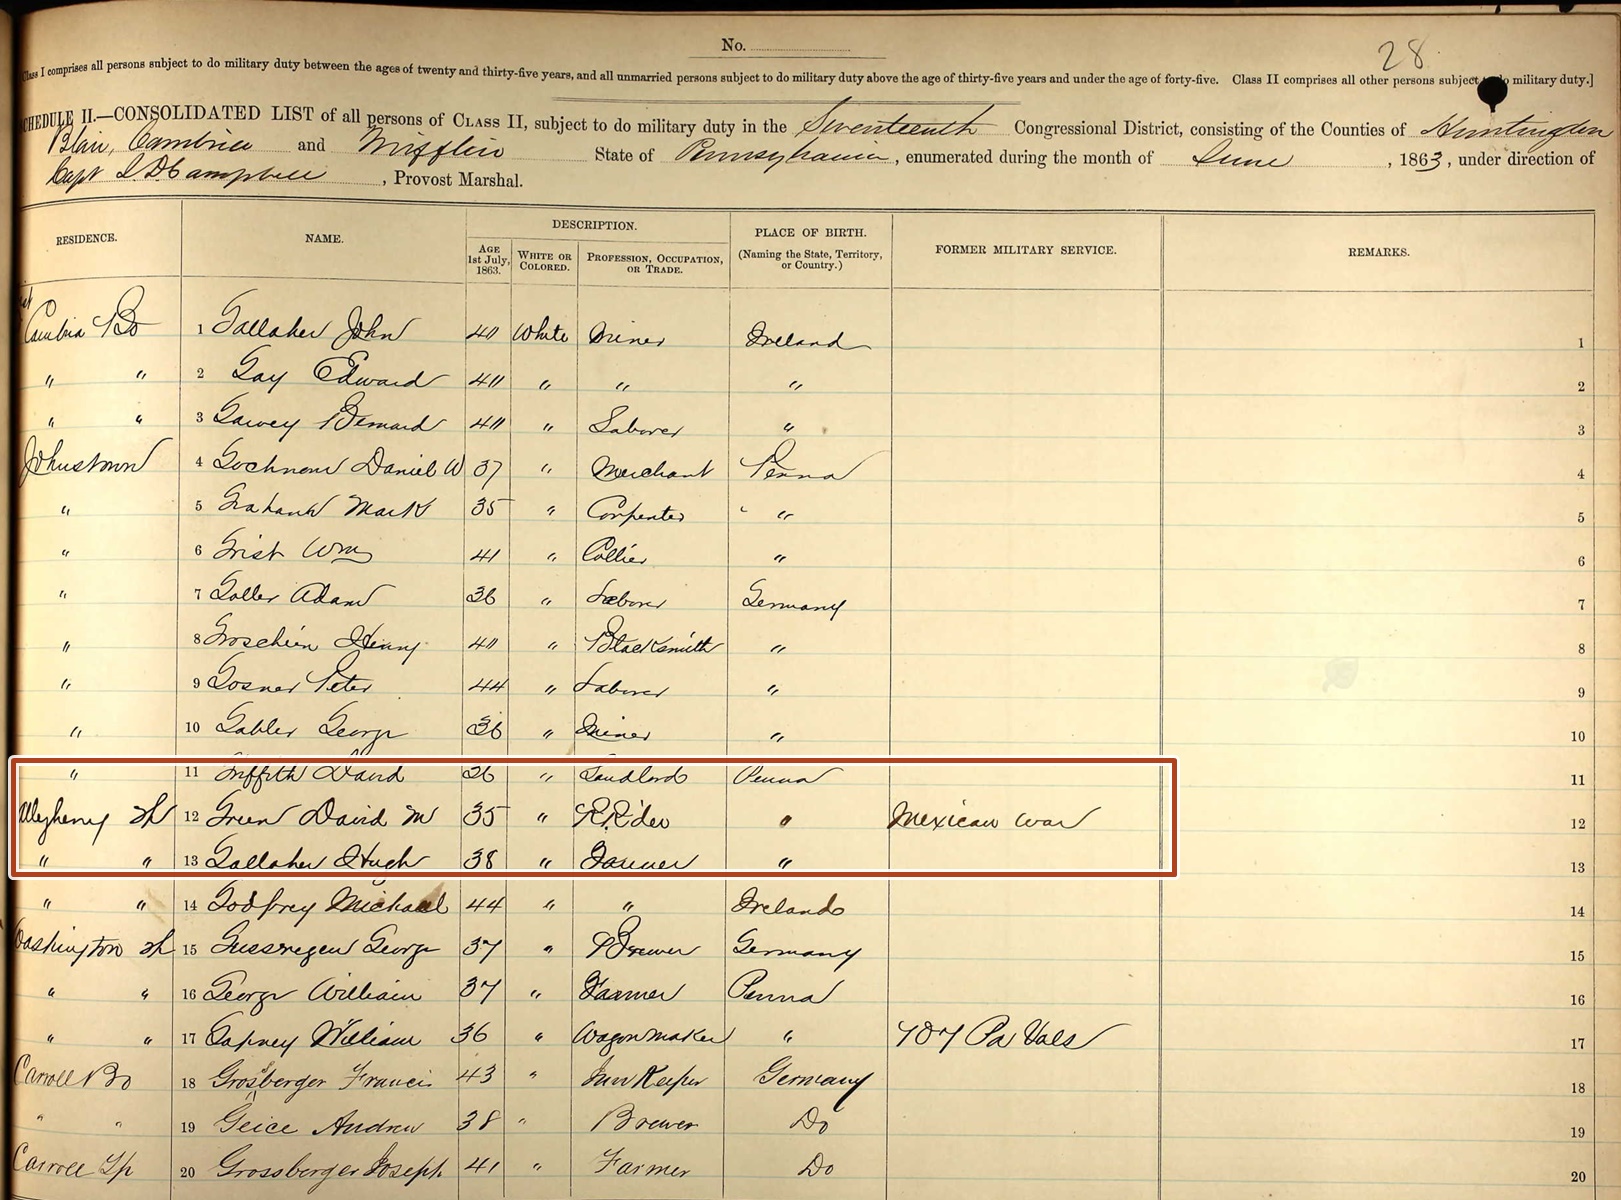 No.
28
Class I comprises all persons subject to do military duty between the ages of twenty and thirty-five years, and all unmarried persons subject to do military duty above the age of thirty-five years and under the age of forty-five. Class II comprises all other persons subject to do military duty.]
SCHEDULE II.—CONSOLIDATED LIST of all persons of CLASS II, subject to do military duty in the Seventeenth Congressional District, consisting of the Counties of Huntingdon
Blair, Cambria and Mifflin State of Pennsylvania, enumerated during the month of June, 1863, under direction of
Capt Campbell, Provost Marshal.
DESCRIPTION.
RESIDENCE. NAME. AGE 1st July, 1863. WHITE OR COLORED. PROFESSION, OCCUPATION, OR TRADE. PLACE OF BIRTH. (Naming the State, Territory, or Country.) FORMER MILITARY SERVICE. REMARKS.
Cambria Bo 1 Gallaher John 40 White Miner Ireland 1
" " 2 Gay Edward 40 " " " 2
" " 3 Garvey Bernard 40 " Laborer " 3
Johnstown 4 Daniel W 37 " Merchant Penna 4
" 5 Graham Mark 35 " Carpenter " 5
" 6 Grist Wm 41 " Collier " 6
" 7 Goller Adam 36 " Laborer Germany 7
" 8 Henry 40 " Blacksmith " 8
" 9 Gosner Peter 44 " Laborer " 9
" 10 Gabler George 36 " Miner " 10
" 11 Griffith David 36 " Landlord Penna 11
Allegheny 12 Green David M 35 " " Mexican War 12
" " 13 Gallaher Hugh 38 " Farmer " 13
" " 14 Godfrey Michael 44 " " Ireland 14
Washington 15 George 37 " Brewer Germany 15
" " 16 George William 37 " Farmer Penna 16
" " 17 William 36 " Wagonmaker " Pa Vols 17
Carroll Bo 18 Grosberger Francis 43 " Inn Keeper Germany 18
" " 19 Geice Andrew 38 " Brewer Do 19
Carroll Tp 20 Grossberger Joseph 41 " Farmer Do 20